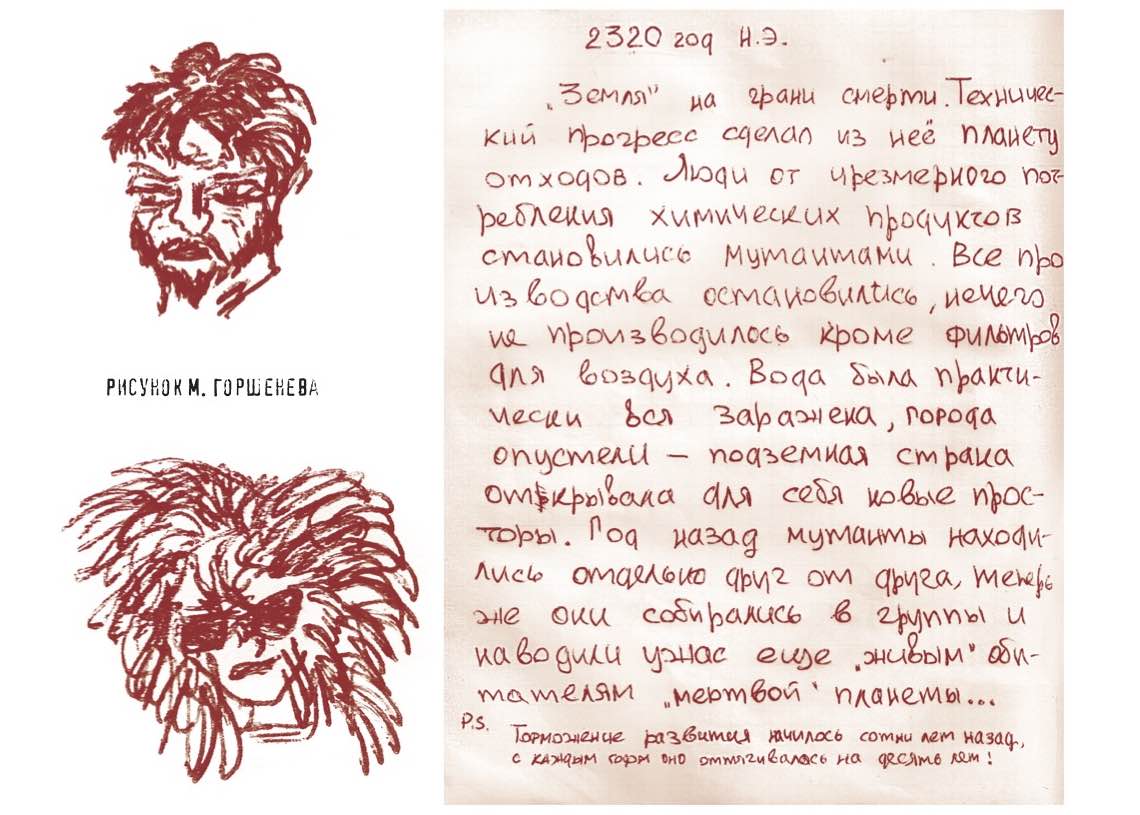 РИСУНОК М. ГОРШЕНЕВА
2320 год Н.Э.
„Земля" на грани смерти. Техничес-
кий прогресс сделал из неё планету
отходов. Люди от чрезмерного пот-
ребления химических продуктов
становились мутантами. Все про
изводства остановились, нечего
не производилось кроме фильтров
для воздуха. Вода была практи-
чески вся заражена, города
опустели — подземная страна
открывала для себя новые прос-
торы. Год назад мутанты находи-
лись отдельно друг от друга, теперь
же они собирались в группы и
наводили ужас еще „живым" оби-
тателям „мертвой" планеты...
P.S. Торможение развития начилось сотни лет назад,
с каждым годом оно оттягивалось на десять лет!